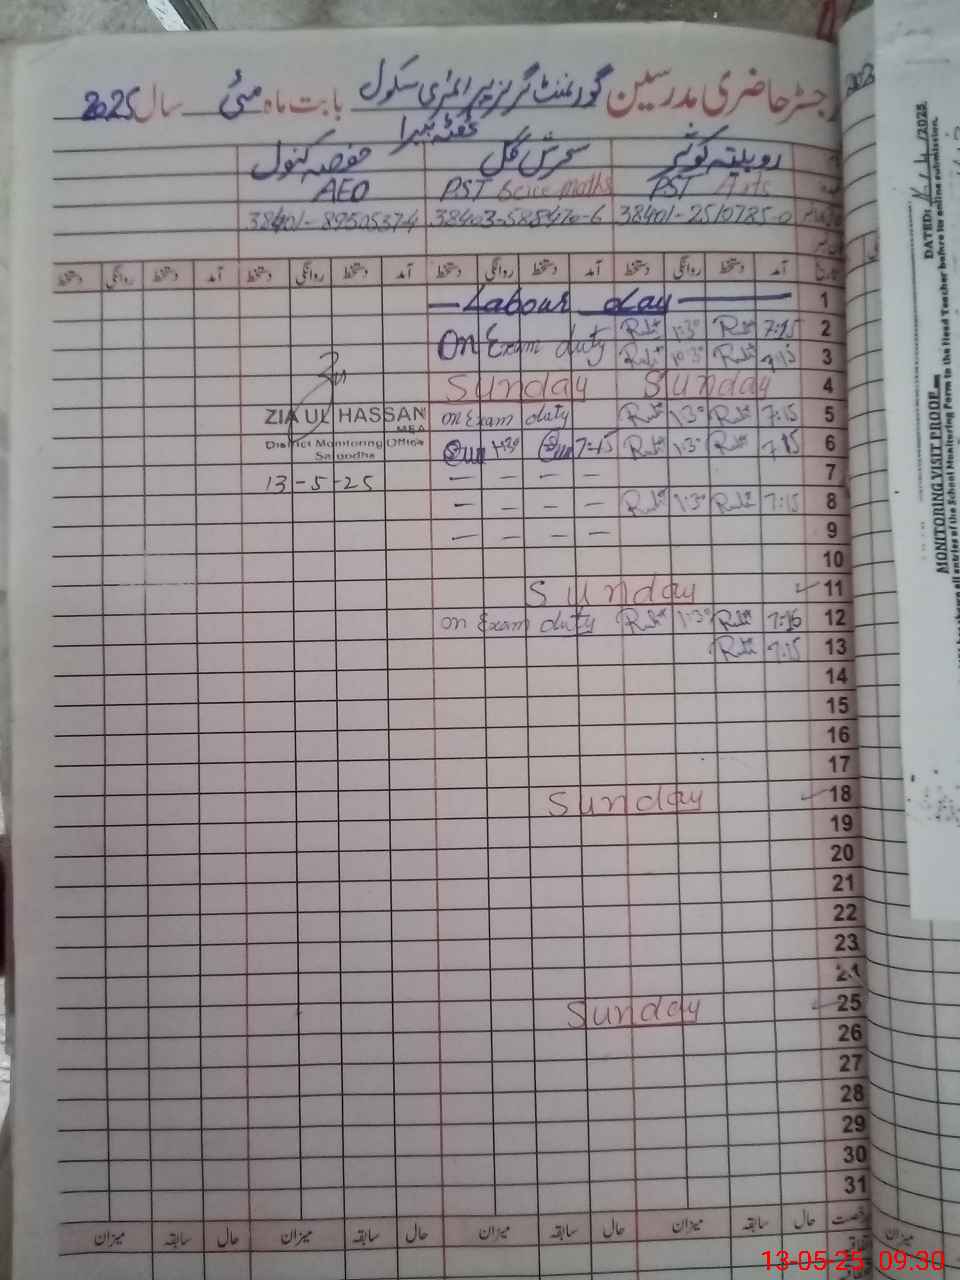 رجسٹر حاضری مدرسین گورنمنٹ گرلز پرائمری سکول بابت ماہ مئی سال 2025
روبینہ کوثر سحرش گل حفصہ کنول
PST Arts PST Scice maths AEO
38401-2510785-0 38403-5854710-6 38401-8950537-4
آمد دستخط روانگی دستخط آمد دستخط روانگی دستخط آمد دستخط روانگی دستخط آمد دستخط روانگی دستخط
1 — Labour day —
2 7:15 1:30 On Exam duty
3 7:15 10:30
4 Sunday Sunday
5 7:15 1:30 on Exam duty
6 7:15 1:30 7:15 1:30
7 — — — —
8 7:15 1:30 — — — —
9 — — — —
10
11 Sunday
12 7:15 1:30 on Exam duty
13 7:15
14
15
16
17
18 Sunday
19
20
21
22
23
24
25 Sunday
26
27
28
29
30
31
ZIA UL HASSAN
MEA
District Monitoring Officer
Sargodha
13-5-25
حال سابقہ میزان حال سابقہ میزان حال سابقہ میزان
میزان
DATED: /2025.
MONITORING VISIT PROOF
all entries of the School Monitoring Form to the Head Teacher before its online submission.
13-05-25 09.30